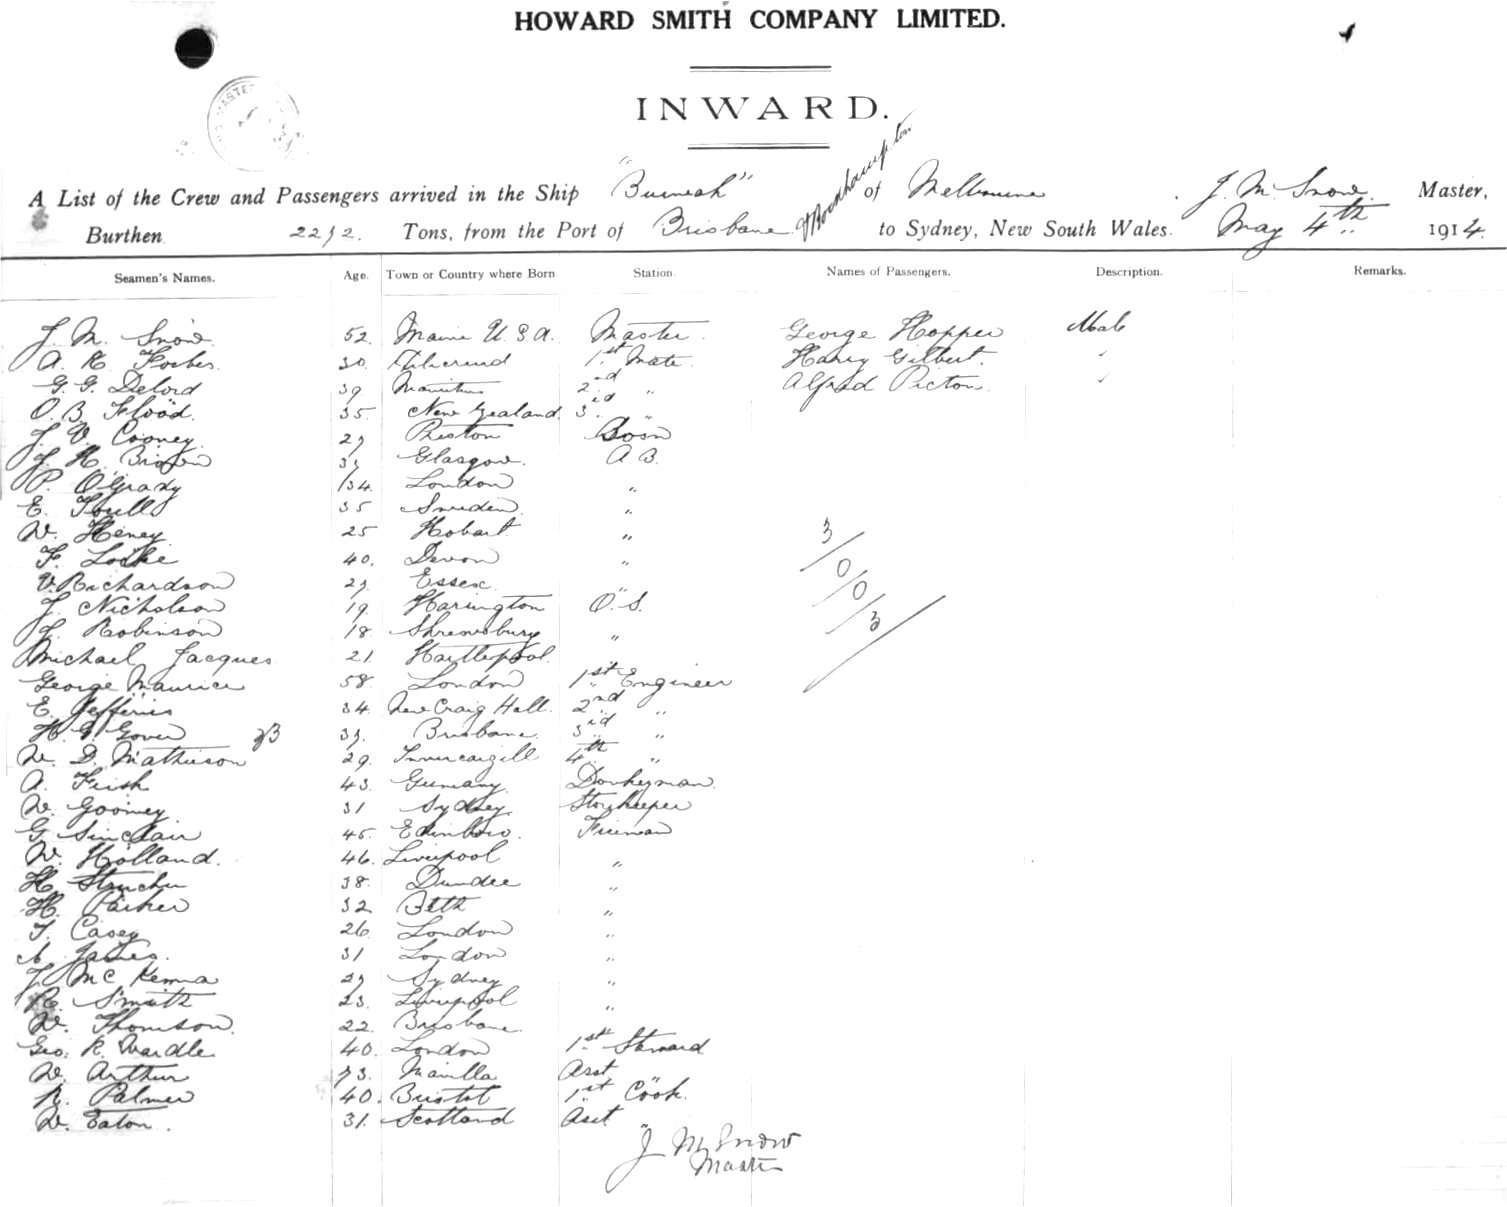 HOWARD SMITH COMPANY LIMITED.
INWARD.
A List of the Crew and Passengers arrived in the Ship "Burwah" of Melbourne J. M. Snow Master,
Burthen 2272. Tons, from the Port of Brisbane & Rockhampton to Sydney, New South Wales. May 4th 1914.
Seamen's Names. Age. Town or Country where Born Station. Names of Passengers. Description. Remarks.
J. M. Snow 52. Maine U.S.A. Master. George Hopper Male
A. H. Forbes 30. 1st Mate. Harry Gilbert. "
G. G. Delord 39 Mauritius 2nd " Alfred Picton. "
O. B. Flood 35. New Zealand 3rd "
J. V. Cooney 27 Preston Bosn
J. H. Brown 37 Glasgow. A B.
P. O'Grady 34. London "
E. 35 Sweden "
W. Heney 25 Hobart "
F. Locke 40. Devon "
V. Richardson 27. Essex "
J. Nicholson 19. Harington O.S.
J. Robinson 18. Shrewsbury "
Michael Jacques 21. Hartlepool "
George Maurice 58. London 1st Engineer
E. Jefferies 34. New Craig Hall. 2nd "
H. G. Gover 37. Brisbane 3rd "
W. D. Mathieson 29. Invercargill 4th "
A. Frish 43. Germany Donkeyman.
W. Goomey 31 Sydney Storekeeper
G. Sinclair 45. Edinboro. Fireman
W. Holland. 46. Liverpool "
H. 38. Dundee "
H. Parker 32 "
T. Casey 26. London "
A. James. 31 London "
J. McKenna 27 Sydney "
R. Smith 23. Liverpool "
W. Thomson. 22. Brisbane
Geo. R. Wardle 40. London 1st Steward
W. Arthur 73. Manilla Asst "
R. Palmer 40. Bristol 1st Cook.
W. Eaton. 31. Scotland Asst "
3
0
0
3
J M Snow
Master